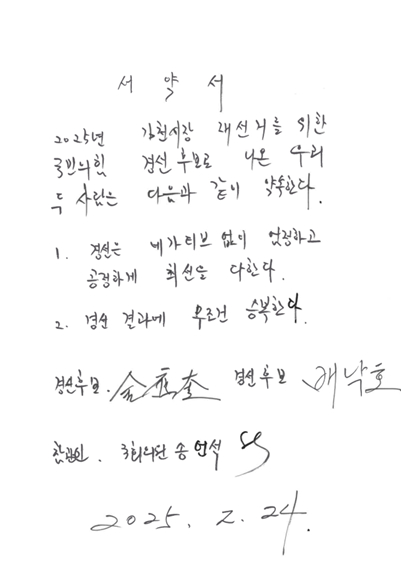 서약서
2025년 김천시장 재선거를 위한
국민의힘 경선후보로 나온 우리
두 사람은 다음과 같이 약속한다.
1. 경선은 네가티브 없이 엄정하고
공정하게 최선을 다한다.
2. 경선 결과에 무조건 승복한다.
경선후보. 金應奎 경선후보 배낙호
참관인. 국회의원 송언석
2025. 2. 24.